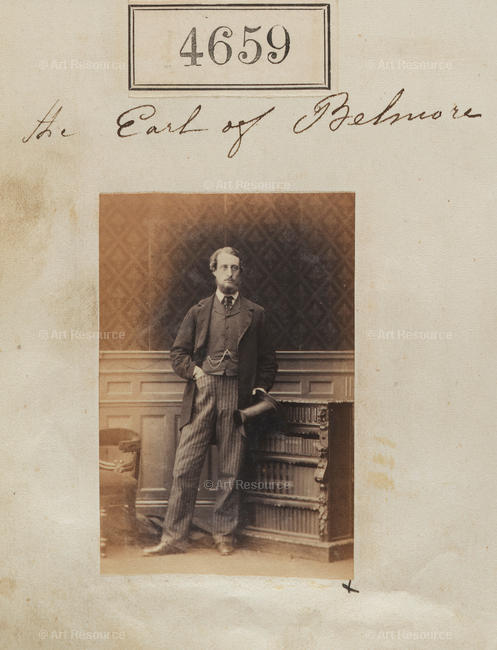 4659
the Earl of Belmore
© Art Resource © Art Resource
© Art Resource
© Art Resource © Art Resource
© Art Resource
© Art Resource © Art Resource
x